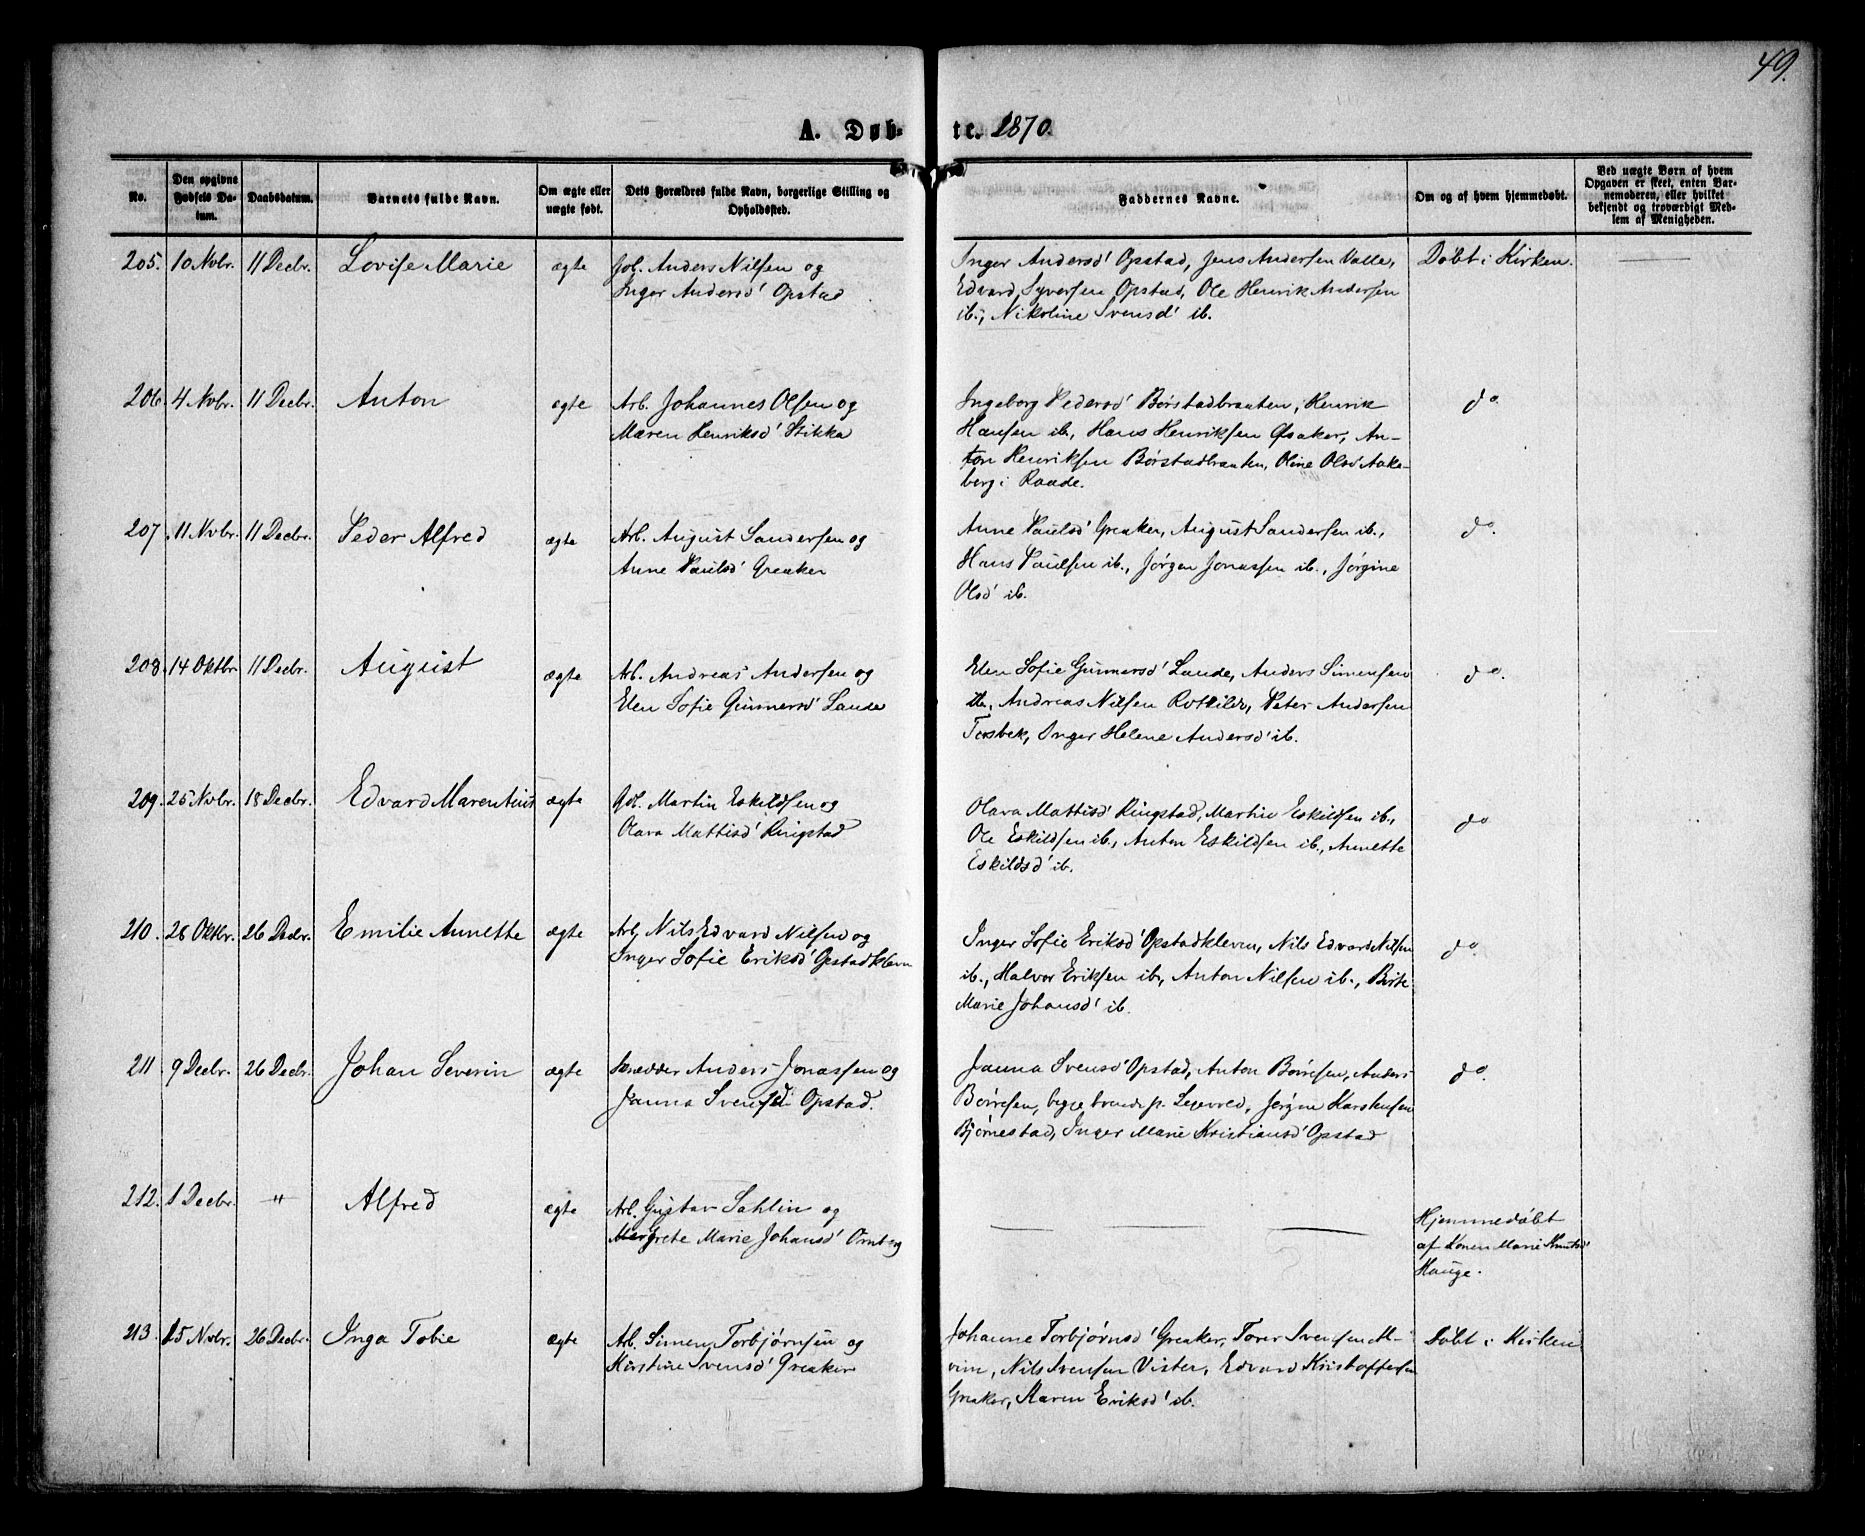 49.
A. Døb- te. 1870.
No.
Den opgivne Fødsels Da-
tum.
Daabsdatum.
Barnets fulde Navn.
Om ægte eller
uægte født.
Dets Forældres fulde Navn, borgerlige Stilling og
Opholdssted.
Faddernes Navne.
Om og af hvem hjemmedøbt.
Ved uægte Børn af hvem
Opgaven er skeet, enten Bar-
nemoderen, eller hvilket
bekjendt og troværdigt Med-
lem af Menigheden.
205. 10 Novbr. 11 Decbr. Lovise Marie ægte Anders Nilsen og
Inger Andersd' Opstad
Inger Andersd' Opstad, Jens Andersen Valle,
Edvard Syversen Opstad, Ole Henrik Andersen
ib., Nikoline Svensd' ib.
Døbt i Kirken.
206. 4 Novbr. 11 Decbr. Anton ægte Arb. Johannes Olsen og
Maren Henriksd' Stikka
Ingeborg Pedersd' Børstadbraaten, Henrik
Hansen ib., Hans Henriksen Gsaker, An-
ton Henriksen Børstadbraaten, Oline Olsd' Aake-
berg i Raade.
do.
207. 11 Novbr. 11 Decbr. Peder Alfred ægte Arb. August Sandersen og
Anne Paulsd' Greaker
Anne Paulsd' Greaker, August Sandersen ib.,
Hans Paulsen ib., Jørgen Jonassen ib., Jørgine
Olsd' ib.
do.
208. 14 Oktbr. 11 Decbr. August ægte Arb. Andreas Andersen og
Elen Sofie Gunnersd' Lande
Elen Sofie Gunnersd' Lande, Anders Simensen
ib., Andreas Nilsen Rotkilde, Peter Andersen
Torsbek, Inger Helene Andersd' ib.
do.
209. 25 Novbr. 18 Decbr. Edvard Marentius ægte Martin Eskildsen og
Olava Mattisd' Ringstad
Olava Mattisd' Ringstad, Martin Eskildsen ib.,
Ole Eskildsen ib., Anton Eskildsen ib., Annette
Eskildsd' ib.
do
210. 28 Oktbr. 26 Decbr. Emilie Annette ægte Arb. Nils Edvard Nilsen og
Inger Sofie Eriksd' Opstadkleven
Inger Sofie Eriksd' Opstadkleven, Nils Edvard Nilsen
ib., Halvor Eriksen ib., Anton Nilsen ib., Birte
Marie Johansd' ib.
do.
211 9 Decbr. 26 Decbr. Johan Severin ægte Skrædder Anders Jonassen og
Janna Svensd' Opstad.
Janna Svensd' Opstad, Anton Børresen, Anders
Børresen, begge boende p. Leievold, Jørgen Karstensen
Bjørnestad, Inger Marie Kristiansd' Opstad
do.
212. 1 Decbr. " Alfred ægte Arb. Gustav Sahlin og
Margrete Marie Johansd' Ornberg
Hjemmedøbt
af Konen Marie Knutsd'
Hauge.
213. 15 Novbr. 26 Decbr. Inga Tobie ægte Arb. Simen Torbjørnsen og
Kirstine Svensd' Greaker
Johanne Torbjørnsd' Greaker, Torer Svensen M-
vim, Nils Svensen Vister, Edvard Kristoffersen
Greaker, Karen Eriksd' ib.
Døbt i Kirken